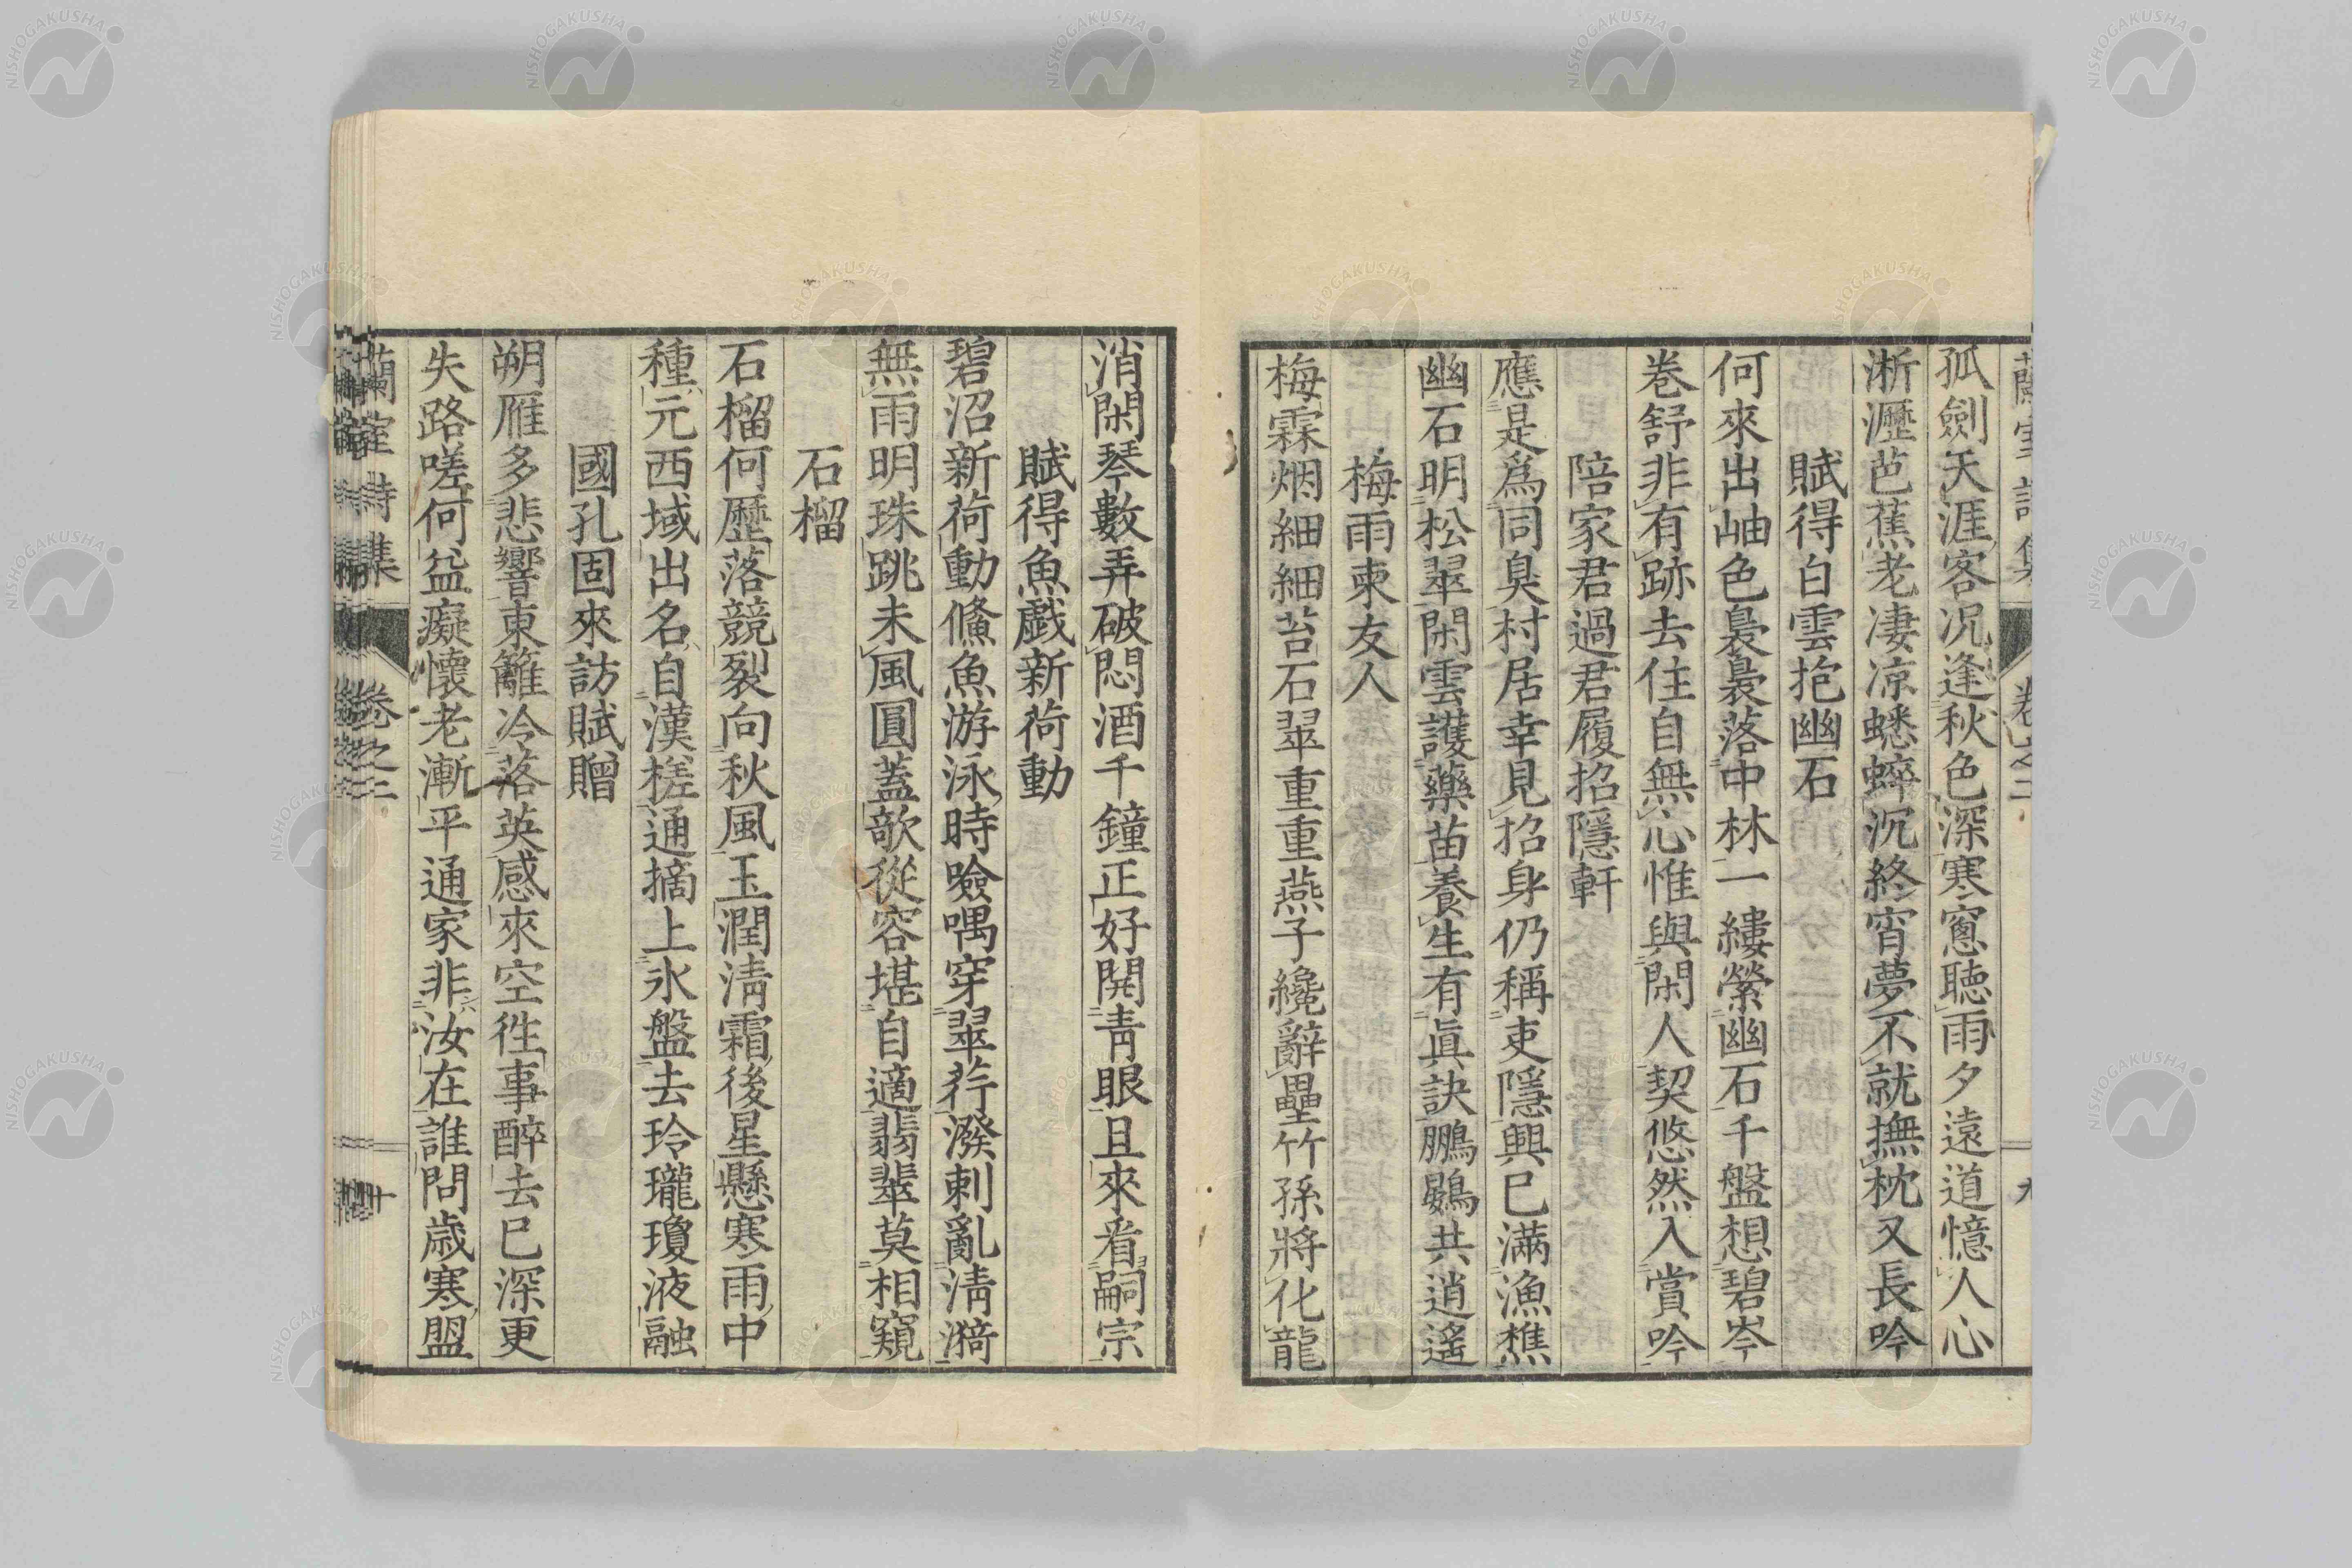 蘭室詩集 卷之二 九
孤劍天涯客況逢秋色深寒窻聽雨夕遠道憶人心
淅瀝芭蕉老凄凉蟋蟀沉終宵夢不就撫枕又長吟
賦得白雲抱幽石
何來出岫色裊裊落中林一縷縈幽石千盤想碧岑
卷舒非有跡去住自無心惟與閑人契悠然入賞吟
陪家君過君履招隱軒
應是爲同臭村居幸見招身仍稱吏隱興已滿漁樵
幽石明松翠閑雲護藥苗養生有眞訣鵬鷃共逍遙
梅雨柬友人
梅霖烟細細苔石翠重重燕子纔辭壘竹孫將化龍
消閑琴數弄破悶酒千鐘正好開青眼且來看嗣宗
賦得魚戯新荷動
碧沼新荷動鯈魚游泳時噞喁穿翠荇潑剌亂淸漪
無雨明珠跳未風圓蓋欹從容堪自適翡翠莫相窺
石榴
石榴何歷落競裂向秋風玉潤淸霜後星懸寒雨中
種元西域出名自漢槎通摘上氷盤去玲瓏瓊液融
國孔固來訪賦贈
朔雁多悲響東籬冷落英感來空徃事醉去已深更
失路嗟何益癡懷老漸平通家非汝在誰問歳寒盟
蘭室詩集 卷之二 十